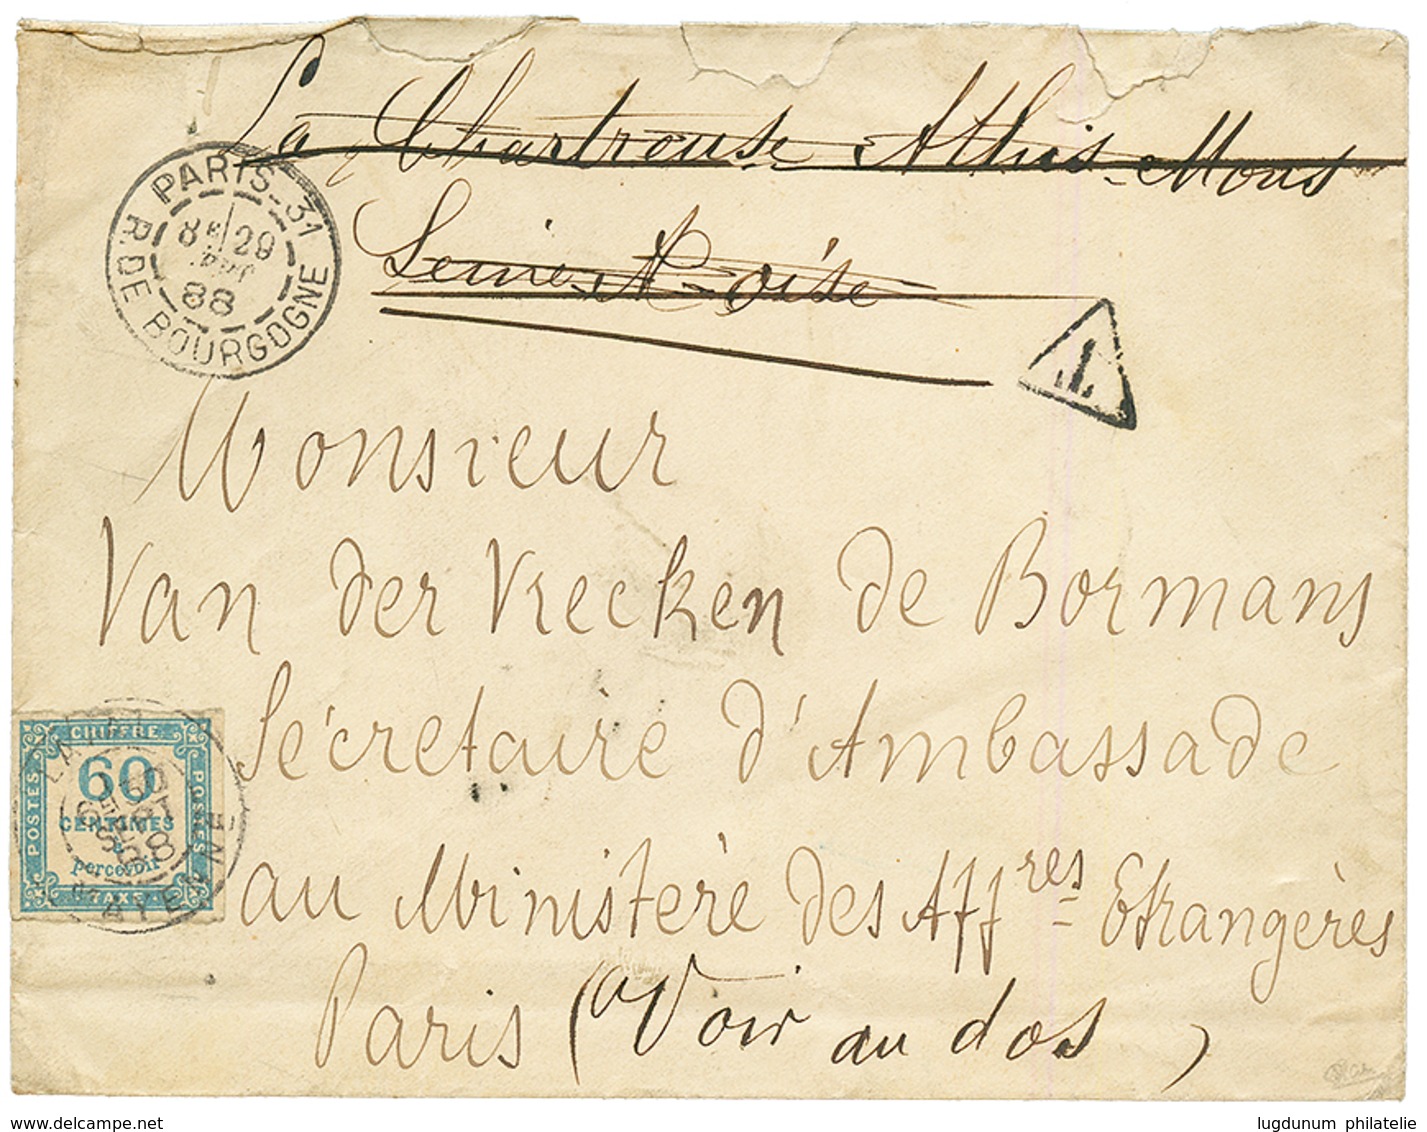 La Chartreuse Athis-Mons
Seine & Oise
PARIS-31
8E 29
88
R. DE BOURGOGNE
T
Monsieur
Van der Vrecken de Bormans
Secrétaire d'Ambassade
au Ministère des Affres Etrangères
Paris (Voir au dos)
CHIFFRE
POSTES
POSTES
60
CENTIMES
à percevoir
TAXE
LAVAL
SEPT
88
MAYENNE
lugdunum philatelie